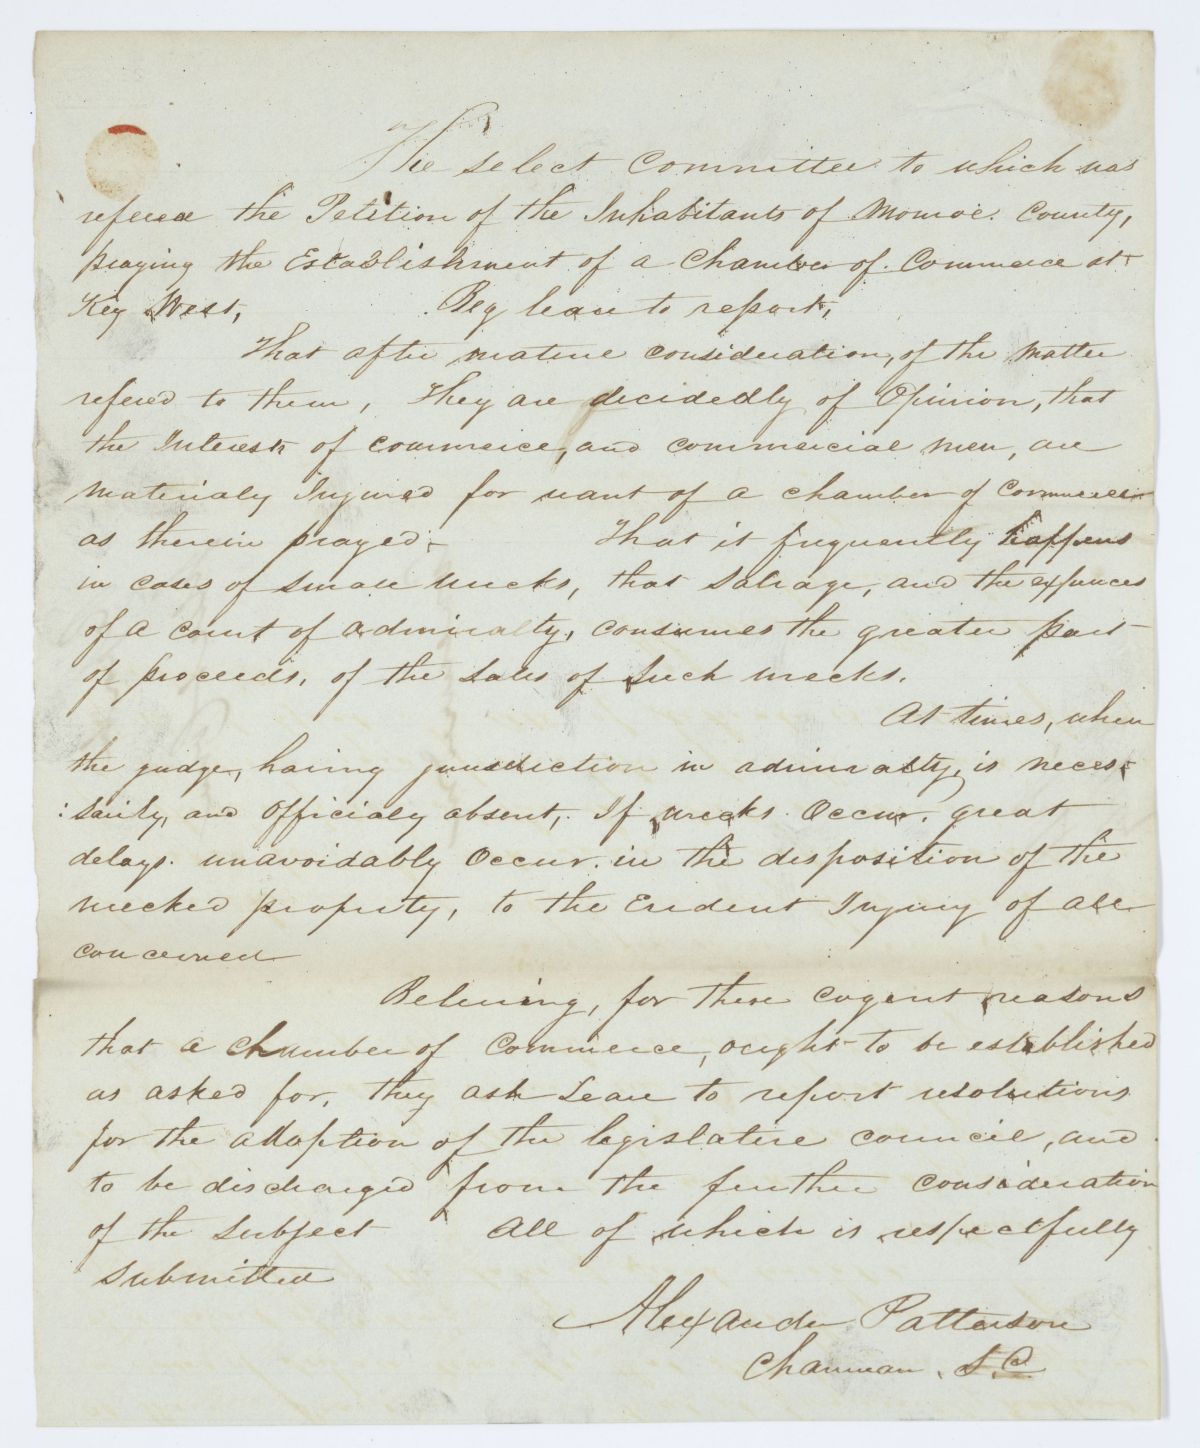 The select Committee to which was
refered the Petition of the Inhabitants of Monroe County,
praying the Establishment of a Chamber of Commerce at
Key West, Beg leave to report,
That after mature consideration, of the matter
refered to them, They are decidedly of Opinion, that
the Interests of commerce, and commercial men, are
materialy Injured for want of a chamber of commerce
as therein prayed. That it frequently happens
in cases of small wrecks, that salvage, and the expences
of a court of admiralty, consumes the greater part
of proceeds, of the sales of such wrecks.
At times, when
the judge, having jurisdiction in admiralty, is neces-
:sarily, and officialy absent, If wrecks Occur, great
delays unavoidably Occur in the disposition of the
wrecked property, to the Evident Injury of all
concerned
Beleiving, for these cogent reasons
that a chamber of Commerce, ought to be established
as asked for, they ask Leave to report resolutions
for the addoption of the legislative council, and
to be discharged from the further consideration
of the subject All of which is respectfully
submitted
Alexander Patterson
Chairman S.C.